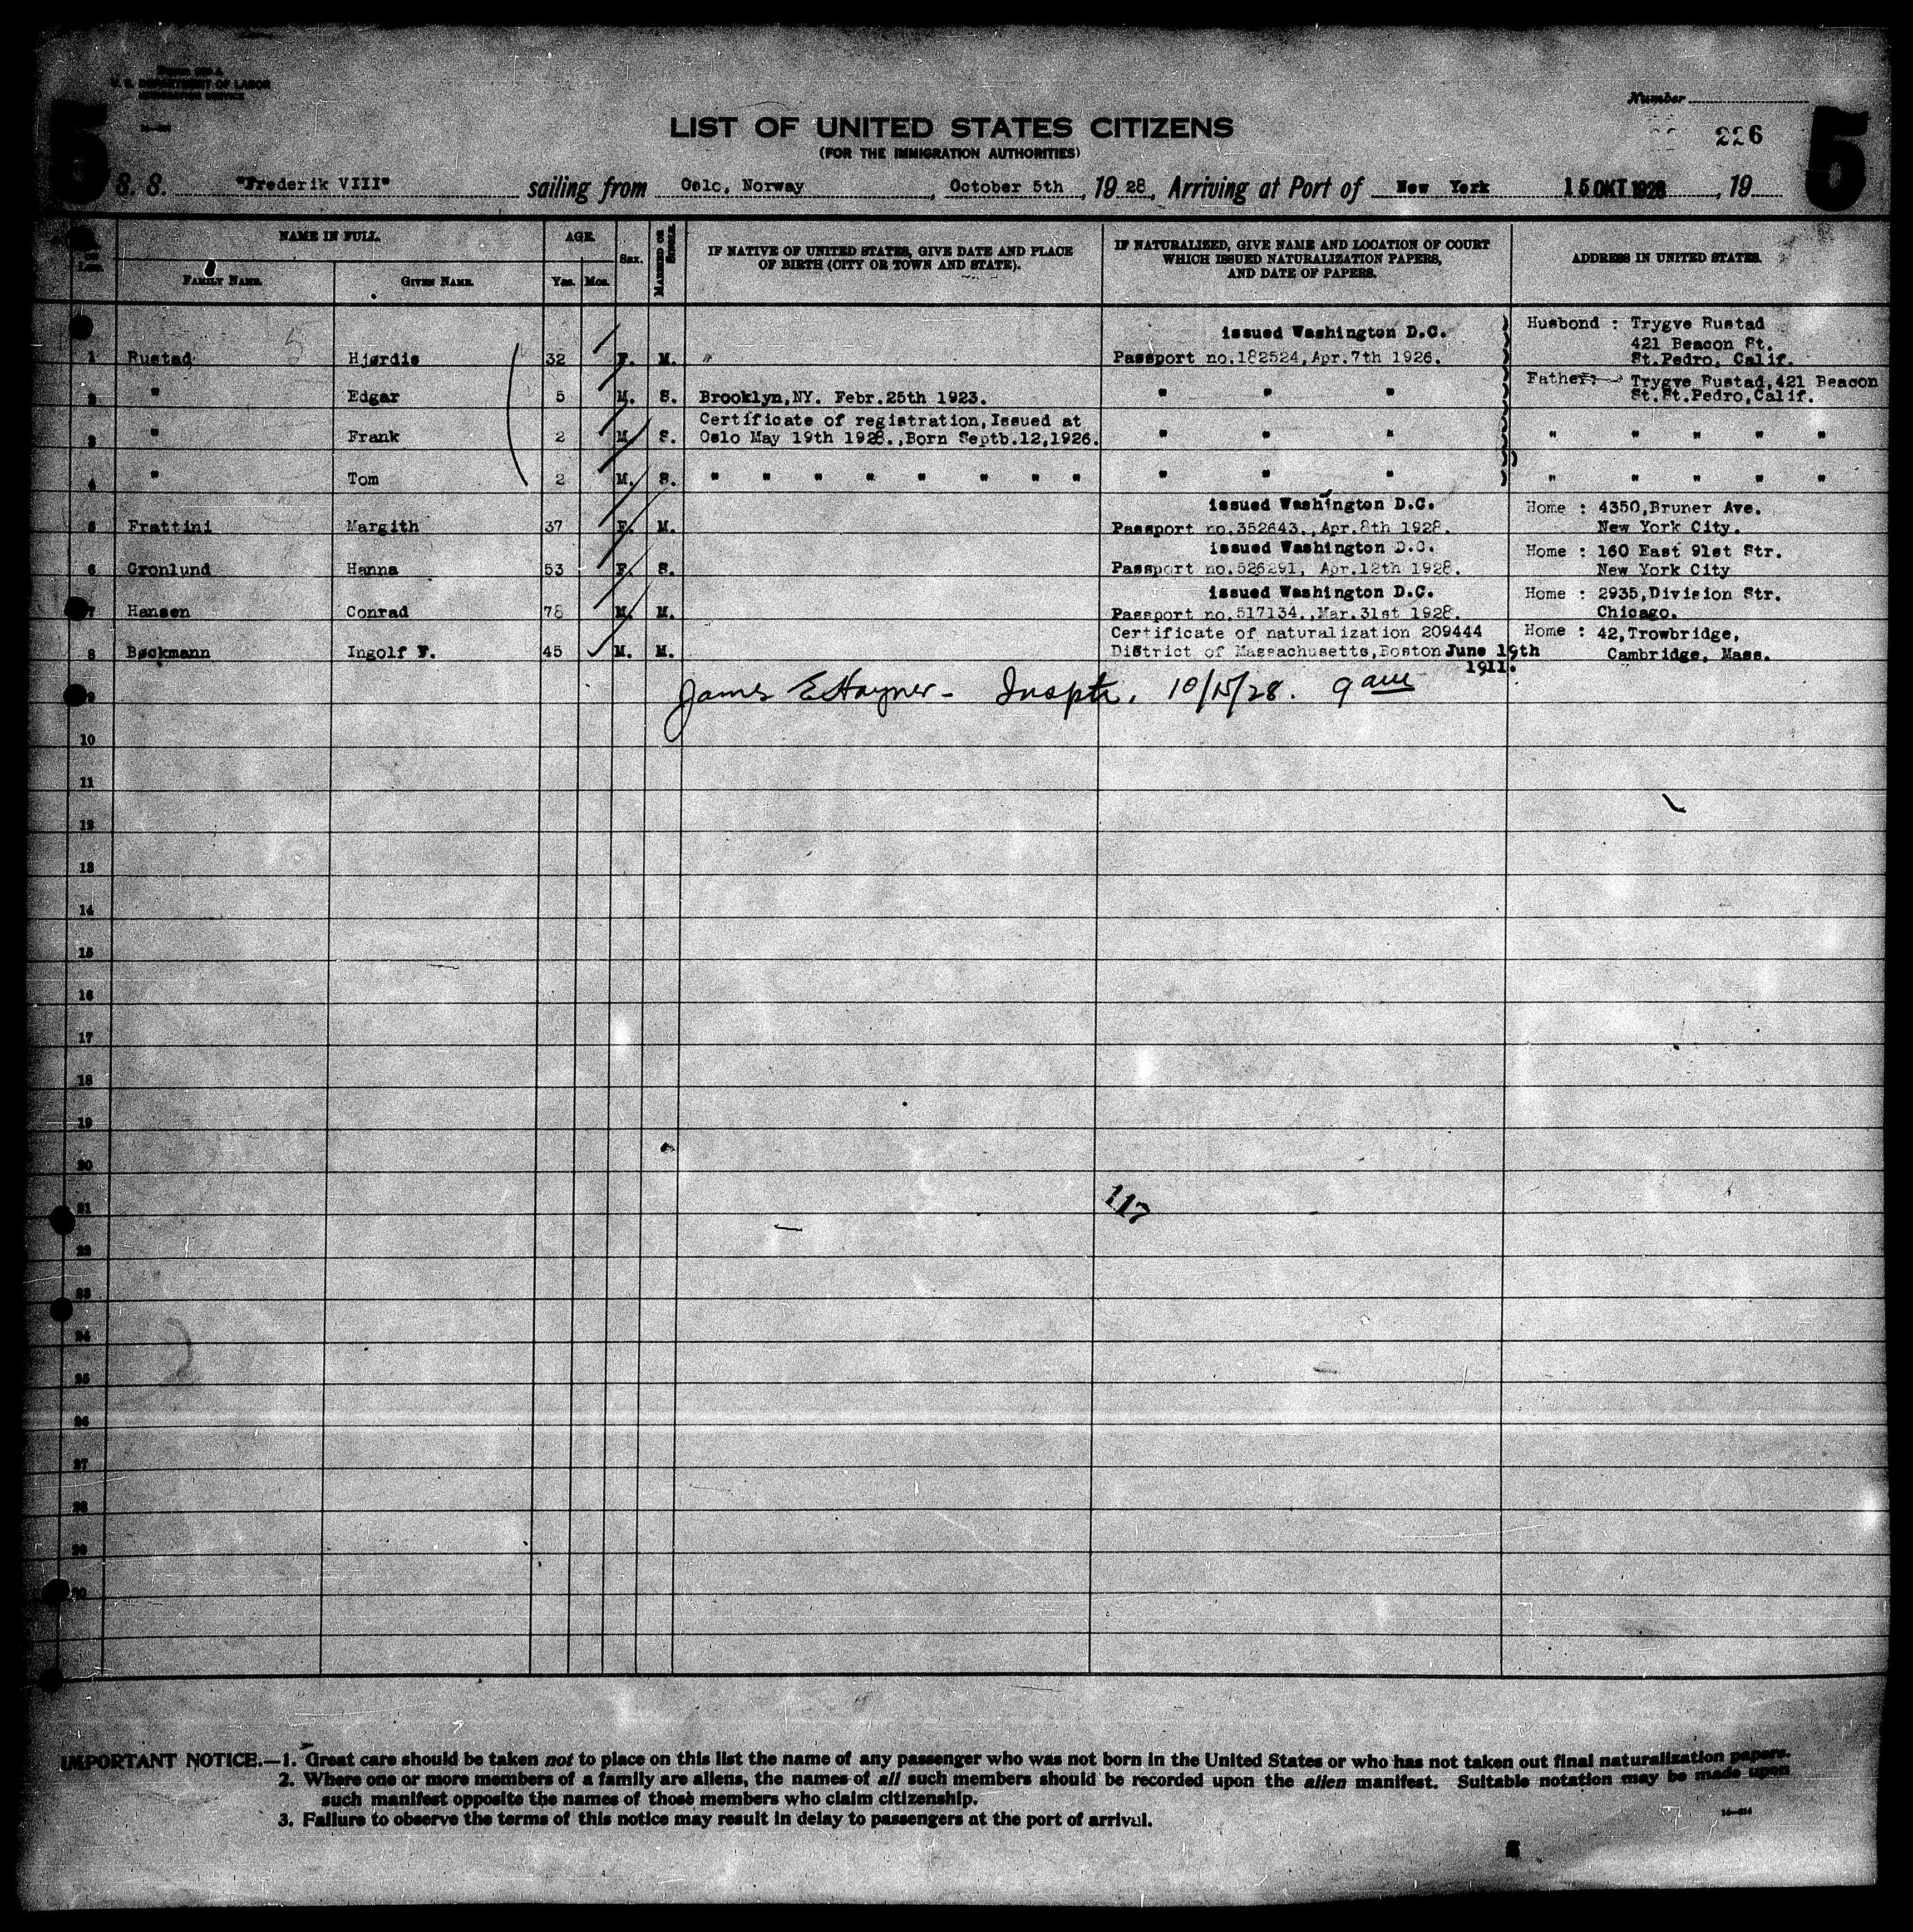 U. S. DEPARTMENT OF LABOR
Number
5
LIST OF UNITED STATES CITIZENS
226
5
(FOR THE IMMIGRATION AUTHORITIES)
S. S. "Frederik VIII" sailing from Oslo, Norway, October 5th, 1928, Arriving at Port of New York 15 OKT 1928, 19
NAME IN FULL. AGE. Sex. MARRIED OR SINGLE. IF NATIVE OF UNITED STATES, GIVE DATE AND PLACE OF BIRTH (CITY OR TOWN AND STATE). IF NATURALIZED, GIVE NAME AND LOCATION OF COURT WHICH ISSUED NATURALIZATION PAPERS, AND DATE OF PAPERS. ADDRESS IN UNITED STATES.
FAMILY NAME. GIVEN NAME. Yrs. Mos.
issued Washington D.C. Husbond : Trygve Rustad
421 Beacon St.
1 Rustad Hjørdis 32 F. M. " Passport no.182524, Apr.7th 1926. St.Pedro, Calif.
Father: Trygve Rustad,421 Beacon
2 " Edgar 5 M. S. Brooklyn,NY. Febr.25th 1923. " " " St.St.Pedro,Calif.
Certificate of registration,Issued at
3 " Frank 2 M. S. Oslo May 19th 1928.,Born Septb.12,1926. " " " " " " " "
4 " Tom 2 M. S. " " " " " " " " " " " " " " " "
issued Washington D.C. Home : 4350,Bruner Ave.
5 Frattini Margith 37 F. M. Passport no.352643.,Apr.8th 1928. New York City.
issued Washington D.C. Home : 160 East 91st Str.
6 Gronlund Hanna 53 F. S. Passport no.526291, Apr.12th 1928. New York City
issued Washington D.C. Home : 2935,Division Str.
7 Hansen Conrad 78 M. M. Passport no.517134.,Mar.31st 1928. Chicago.
Certificate of naturalization 209444 Home : 42,Trowbridge,
8 Bøckmann Ingolf F. 45 M. M. District of Massachusetts,Boston June 19th Cambridge, Mass.
1911.
9 James E Hayner - Insptr. 10/15/28. 9 am
10
11
12
13
14
15
16
17
18
19
20
117
21
22
23
24
25
26
27
28
29
30
IMPORTANT NOTICE.—1. Great care should be taken not to place on this list the name of any passenger who was not born in the United States or who has not taken out final naturalization papers.
2. Where one or more members of a family are aliens, the names of all such members should be recorded upon the alien manifest. Suitable notation may be made upon
such manifest opposite the names of those members who claim citizenship.
3. Failure to observe the terms of this notice may result in delay to passengers at the port of arrival.